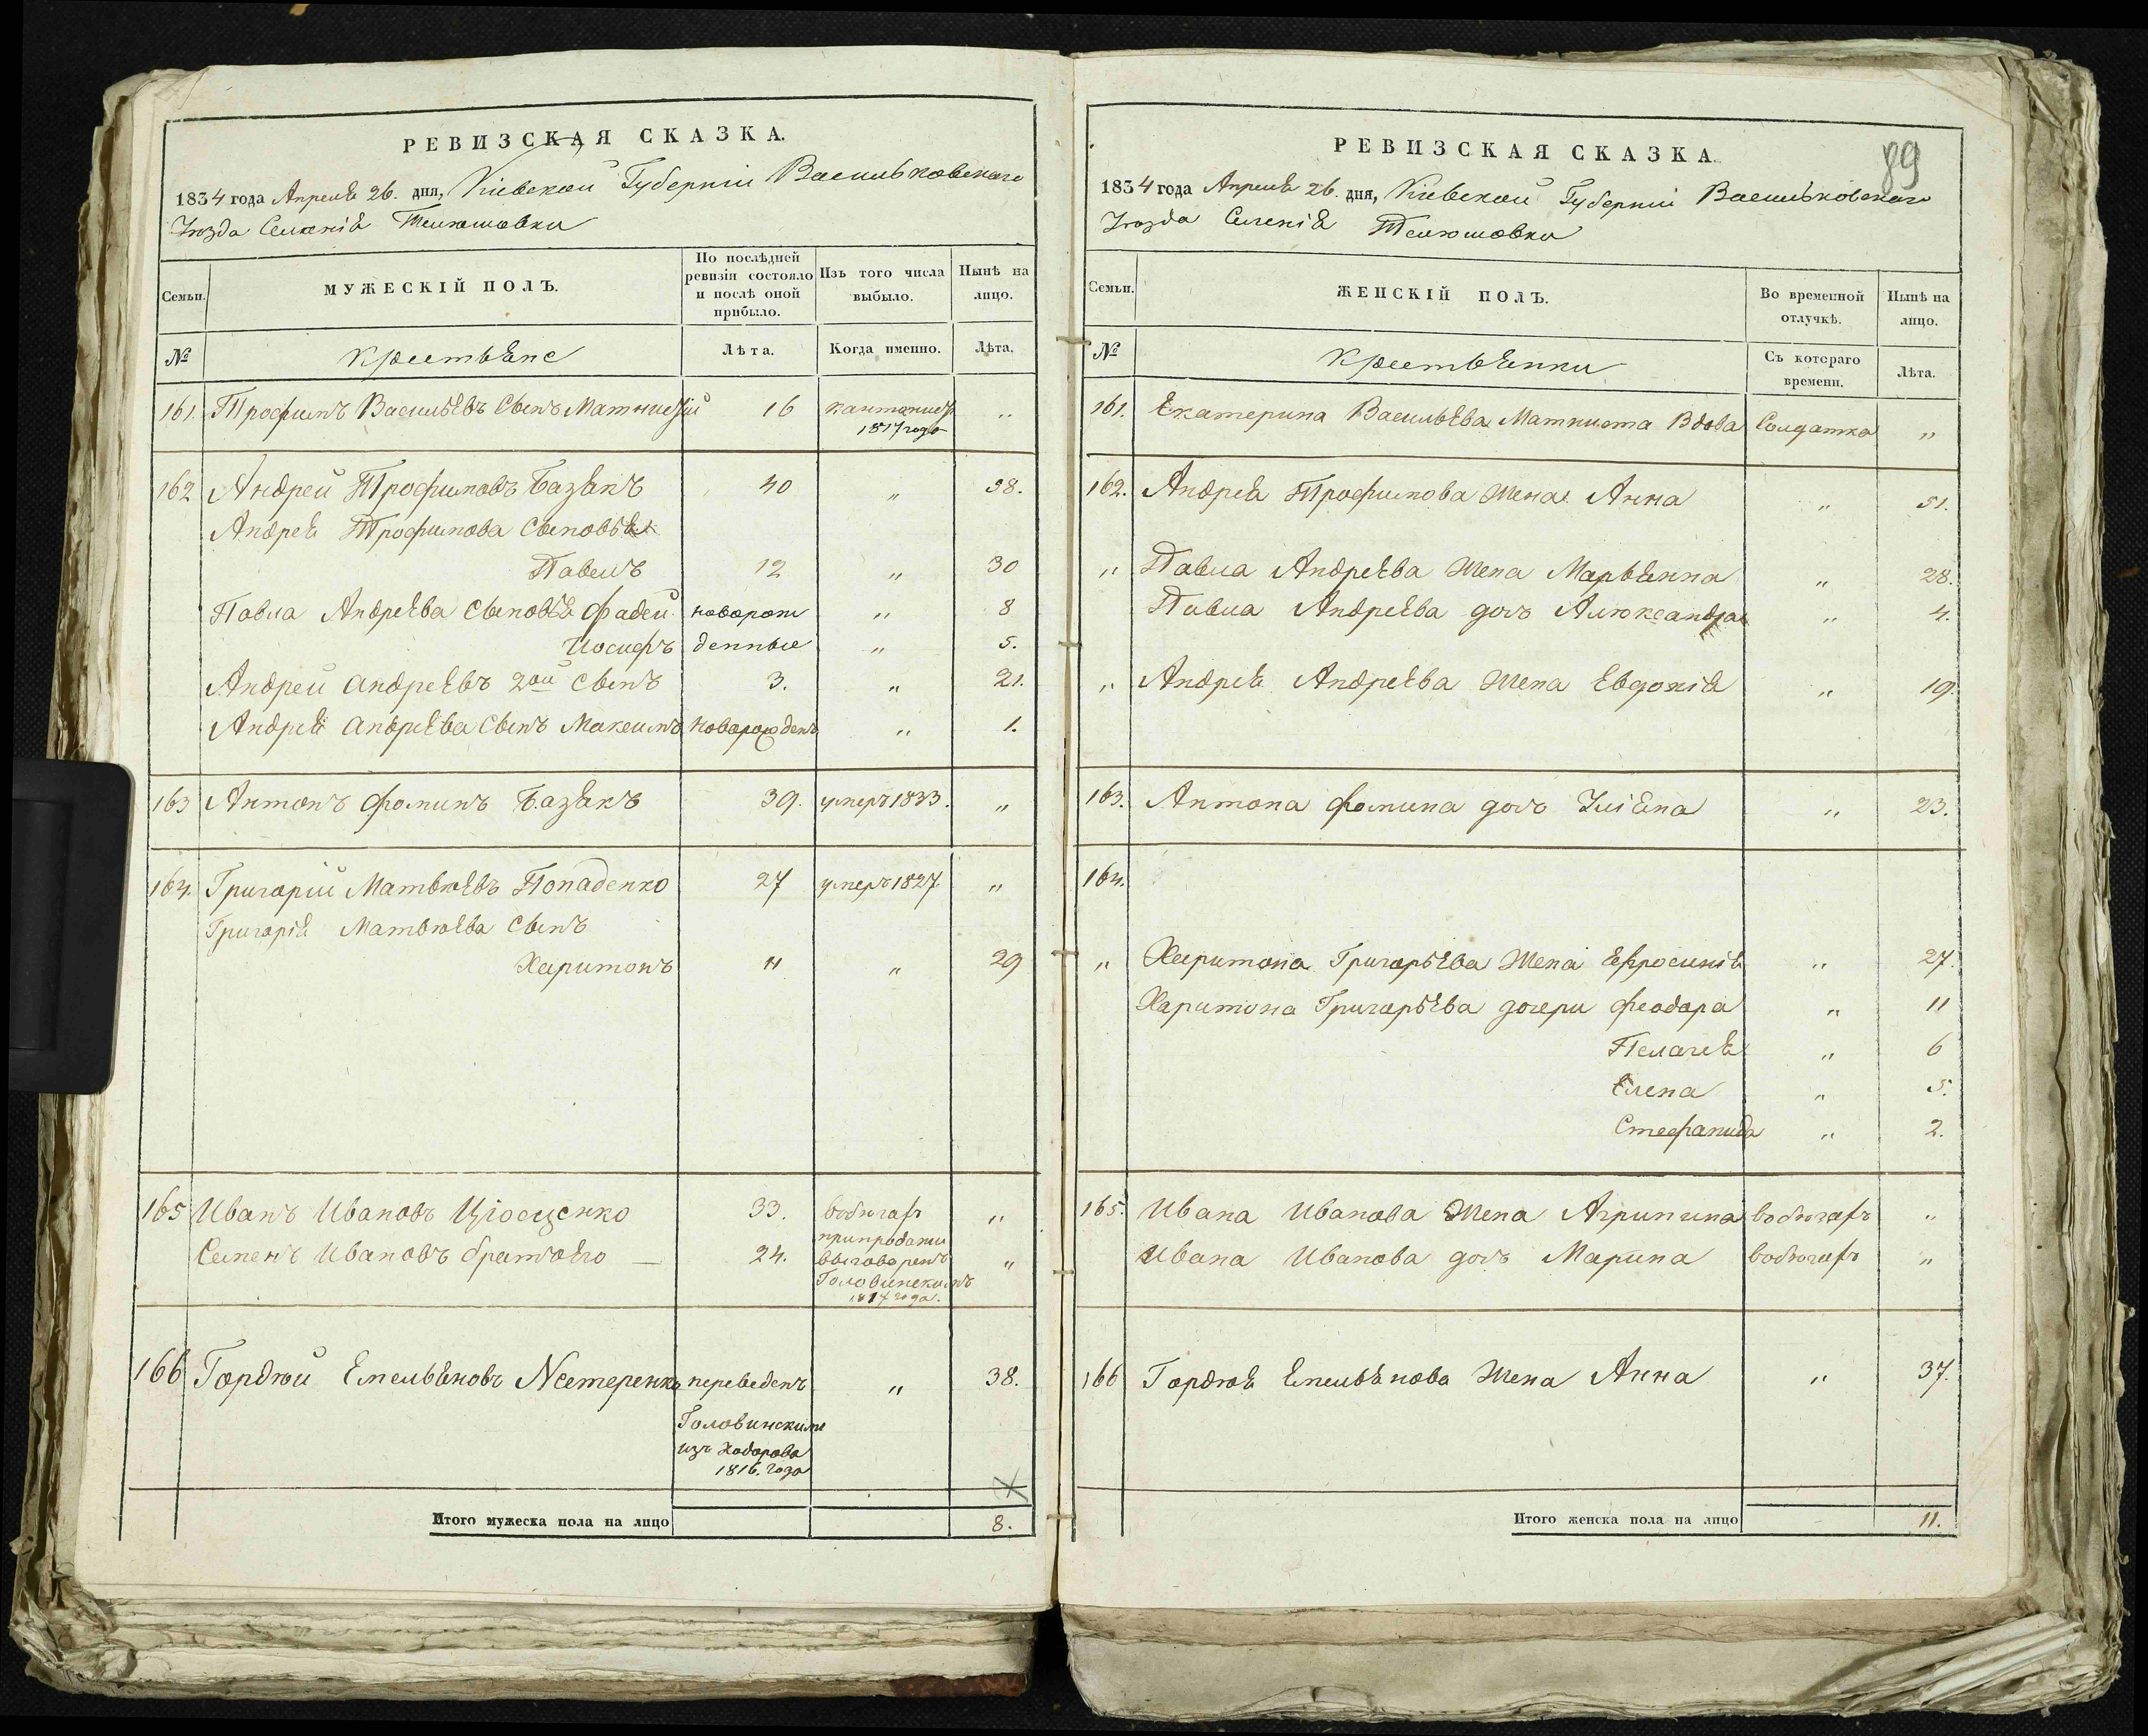 РЕВИЗСКАЯ СКАЗКА.
1834 года Апреля 26. дня, Кіевской Губерніи Васильковскаго
Уѣзда Селенія Телюшовки
Семьи.
МУЖЕСКІЙ ПОЛЪ.
По послѣдней ревизіи состояло и послѣ оной прибыло.
Изъ того числа выбыло.
Нынѣ на лицо.
№
Крестьяне
Лѣта.
Когда именно.
Лѣта.
161. Трофимъ Васильевъ Сынъ 16 кантонистъ 1817 года „
162 Андрей Трофимовъ Базянъ 40 „ 58.
Андрея Трофимова Сыновья
Павелъ 12 „ 30
Павла Андреева Сыновья Фадей новорож „ 8
Иосифъ денные „ 5.
Андрей Андреевъ 2ой Сынъ 3. „ 21.
Андрея Андреева Сынъ Максимъ новорожденъ „ 1.
163 Антонъ Фоминъ Базянъ 39. умеръ 1833. „
164. Григорій Матвѣевъ Попаденко 27 умеръ 1827 „
Григорія Матвѣева Сынъ
Харитонъ 11 „ 29
165 Иванъ Ивановъ 33. вобѣгахъ „
Семенъ Ивановъ братъ его — 24. припродажи выговоренъ Головинскимъ 1817 года. „
166 Гордѣй Емельяновъ Нестеренко переведенъ „ 38.
Головинскимъ
изъ Ходорова
1816. года
Итого мужеска пола на лицо 8.
РЕВИЗСКАЯ СКАЗКА.
89
1834 года Апреля 26. дня, Кіевской Губерніи Васильковскаго
Уѣзда Селенія Телюшовки
Семьи.
ЖЕНСКІЙ ПОЛЪ.
Во временной отлучкѣ.
Нынѣ на лицо.
№
Крестьянки
Съ котораго времени.
Лѣта.
161. Екатерина Васильева Вдова Солдатка „
162. Андрея Трофимова Жена Анна „ 51.
„ Павла Андреева Жена Марьянна „ 28.
Павла Андреева дочь Александра „ 4.
„ Андрея Андреева Жена Евдокія „ 19.
163. Антона Фомина дочь Уліяна „ 23.
164.
„ Харитона Григорьева Жена Ефросинія „ 27.
Харитона Григорьева дочери Феодора „ 11
Пелагея „ 6
Елена „ 5.
Стефанида „ 2.
165. Ивана Иванова Жена Агрипина вобѣгахъ „
Ивана Иванова дочь Марина вобѣгахъ „
166 Гордѣя Емельянова Жена Анна „ 37.
Итого женска пола на лицо 11.